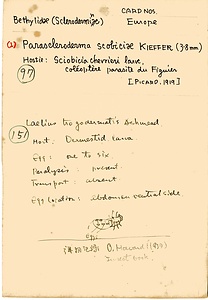 CARD NOS.
Bethylidae (Sclerodermidae) Europe
(1) Parascleroderma scobiciae KIEFFER, (3.8 mm)
Hosts: Sciobicia chevrieri larv.
coléoptère parasite du Figuier
[PICARD, 1919]
(97)
Laelius trogodermatis Ashmead
(151)
Host: Dermestid larva
Egg: one to six
Paralysis: present
Transport: absent
Egg location: abdomen ventral side
O. Howard
Insect book.